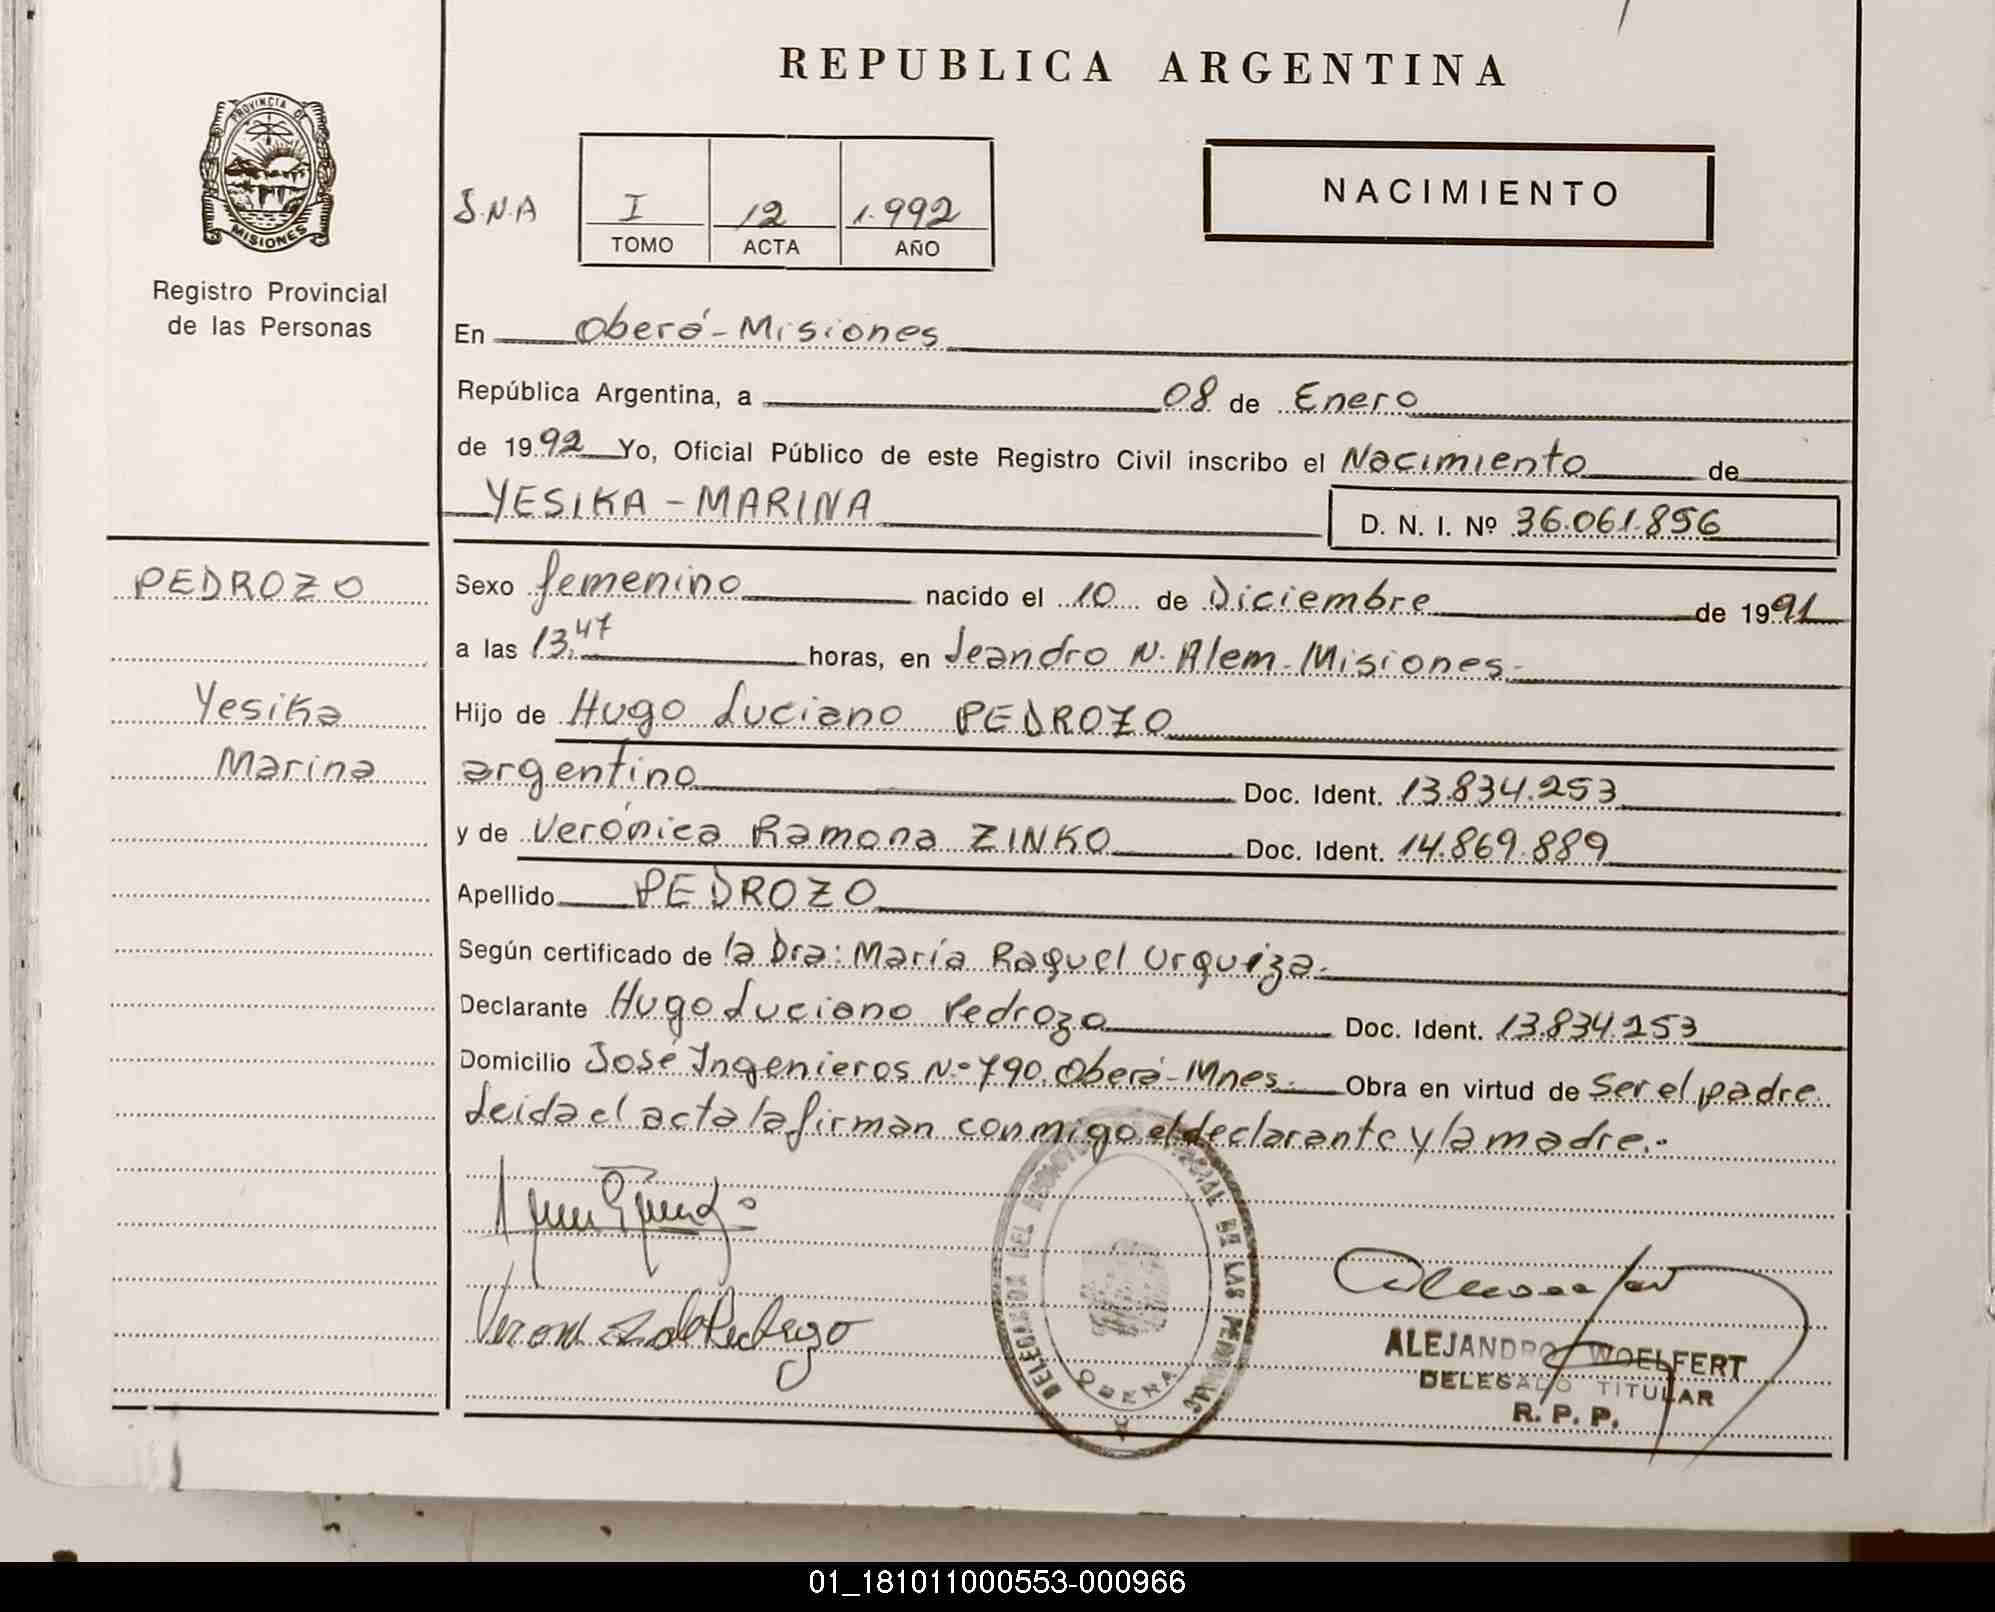 REPUBLICA ARGENTINA
PROVINCIA DE
MISIONES
Registro Provincial
de las Personas
S.N.A
I 12 1.992
TOMO ACTA AÑO
NACIMIENTO
En Oberá - Misiones
República Argentina, a 08 de Enero
de 1992 Yo, Oficial Público de este Registro Civil inscribo el Nacimiento de
YESIKA - MARINA D. N. I. Nº 36.061.856
PEDROZO
Yesika
Marina
Sexo femenino nacido el 10 de Diciembre de 1991
a las 13,47 horas, en Leandro N. Alem - Misiones.
Hijo de Hugo Luciano PEDROZO
argentino Doc. Ident. 13.834.253
y de Verónica Ramona ZINKO Doc. Ident. 14.869.889
Apellido PEDROZO
Según certificado de la Dra: María Raquel Urquiza.
Declarante Hugo Luciano Pedrozo Doc. Ident. 13.834.253
Domicilio José Ingenieros Nº 790. Oberá - Mnes. Obra en virtud de Ser el padre.
Leida el acta la firman conmigo el declarante y la madre.-
DELEGACION DEL REGISTRO PROVINCIAL DE LAS PERSONAS
OBERA
ALEJANDRO WOELFERT
DELEGADO TITULAR
R. P. P.
01_181011000553-000966